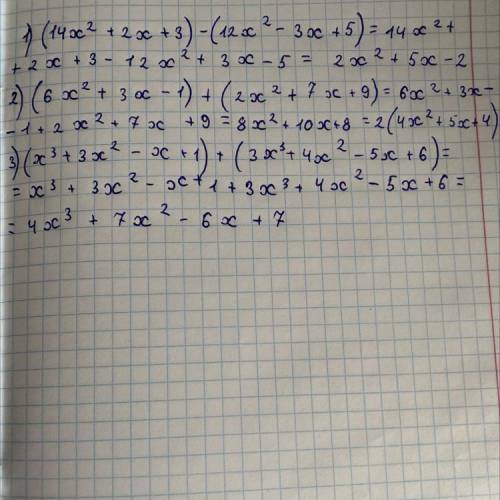 1) (14x² + 2x + 3) - (12x² - 3x + 5) = 14x² +
+ 2x + 3 - 12x² + 3x - 5 = 2x² + 5x - 2
2) (6x² + 3x - 1) + (2x² + 7x + 9) = 6x² + 3x -
- 1 + 2x² + 7x + 9 = 8x² + 10x + 8 = 2(4x² + 5x + 4)
3) (x³ + 3x² - x + 1) + (3x³ + 4x² - 5x + 6) =
= x³ + 3x² - x + 1 + 3x³ + 4x² - 5x + 6 =
= 4x³ + 7x² - 6x + 7